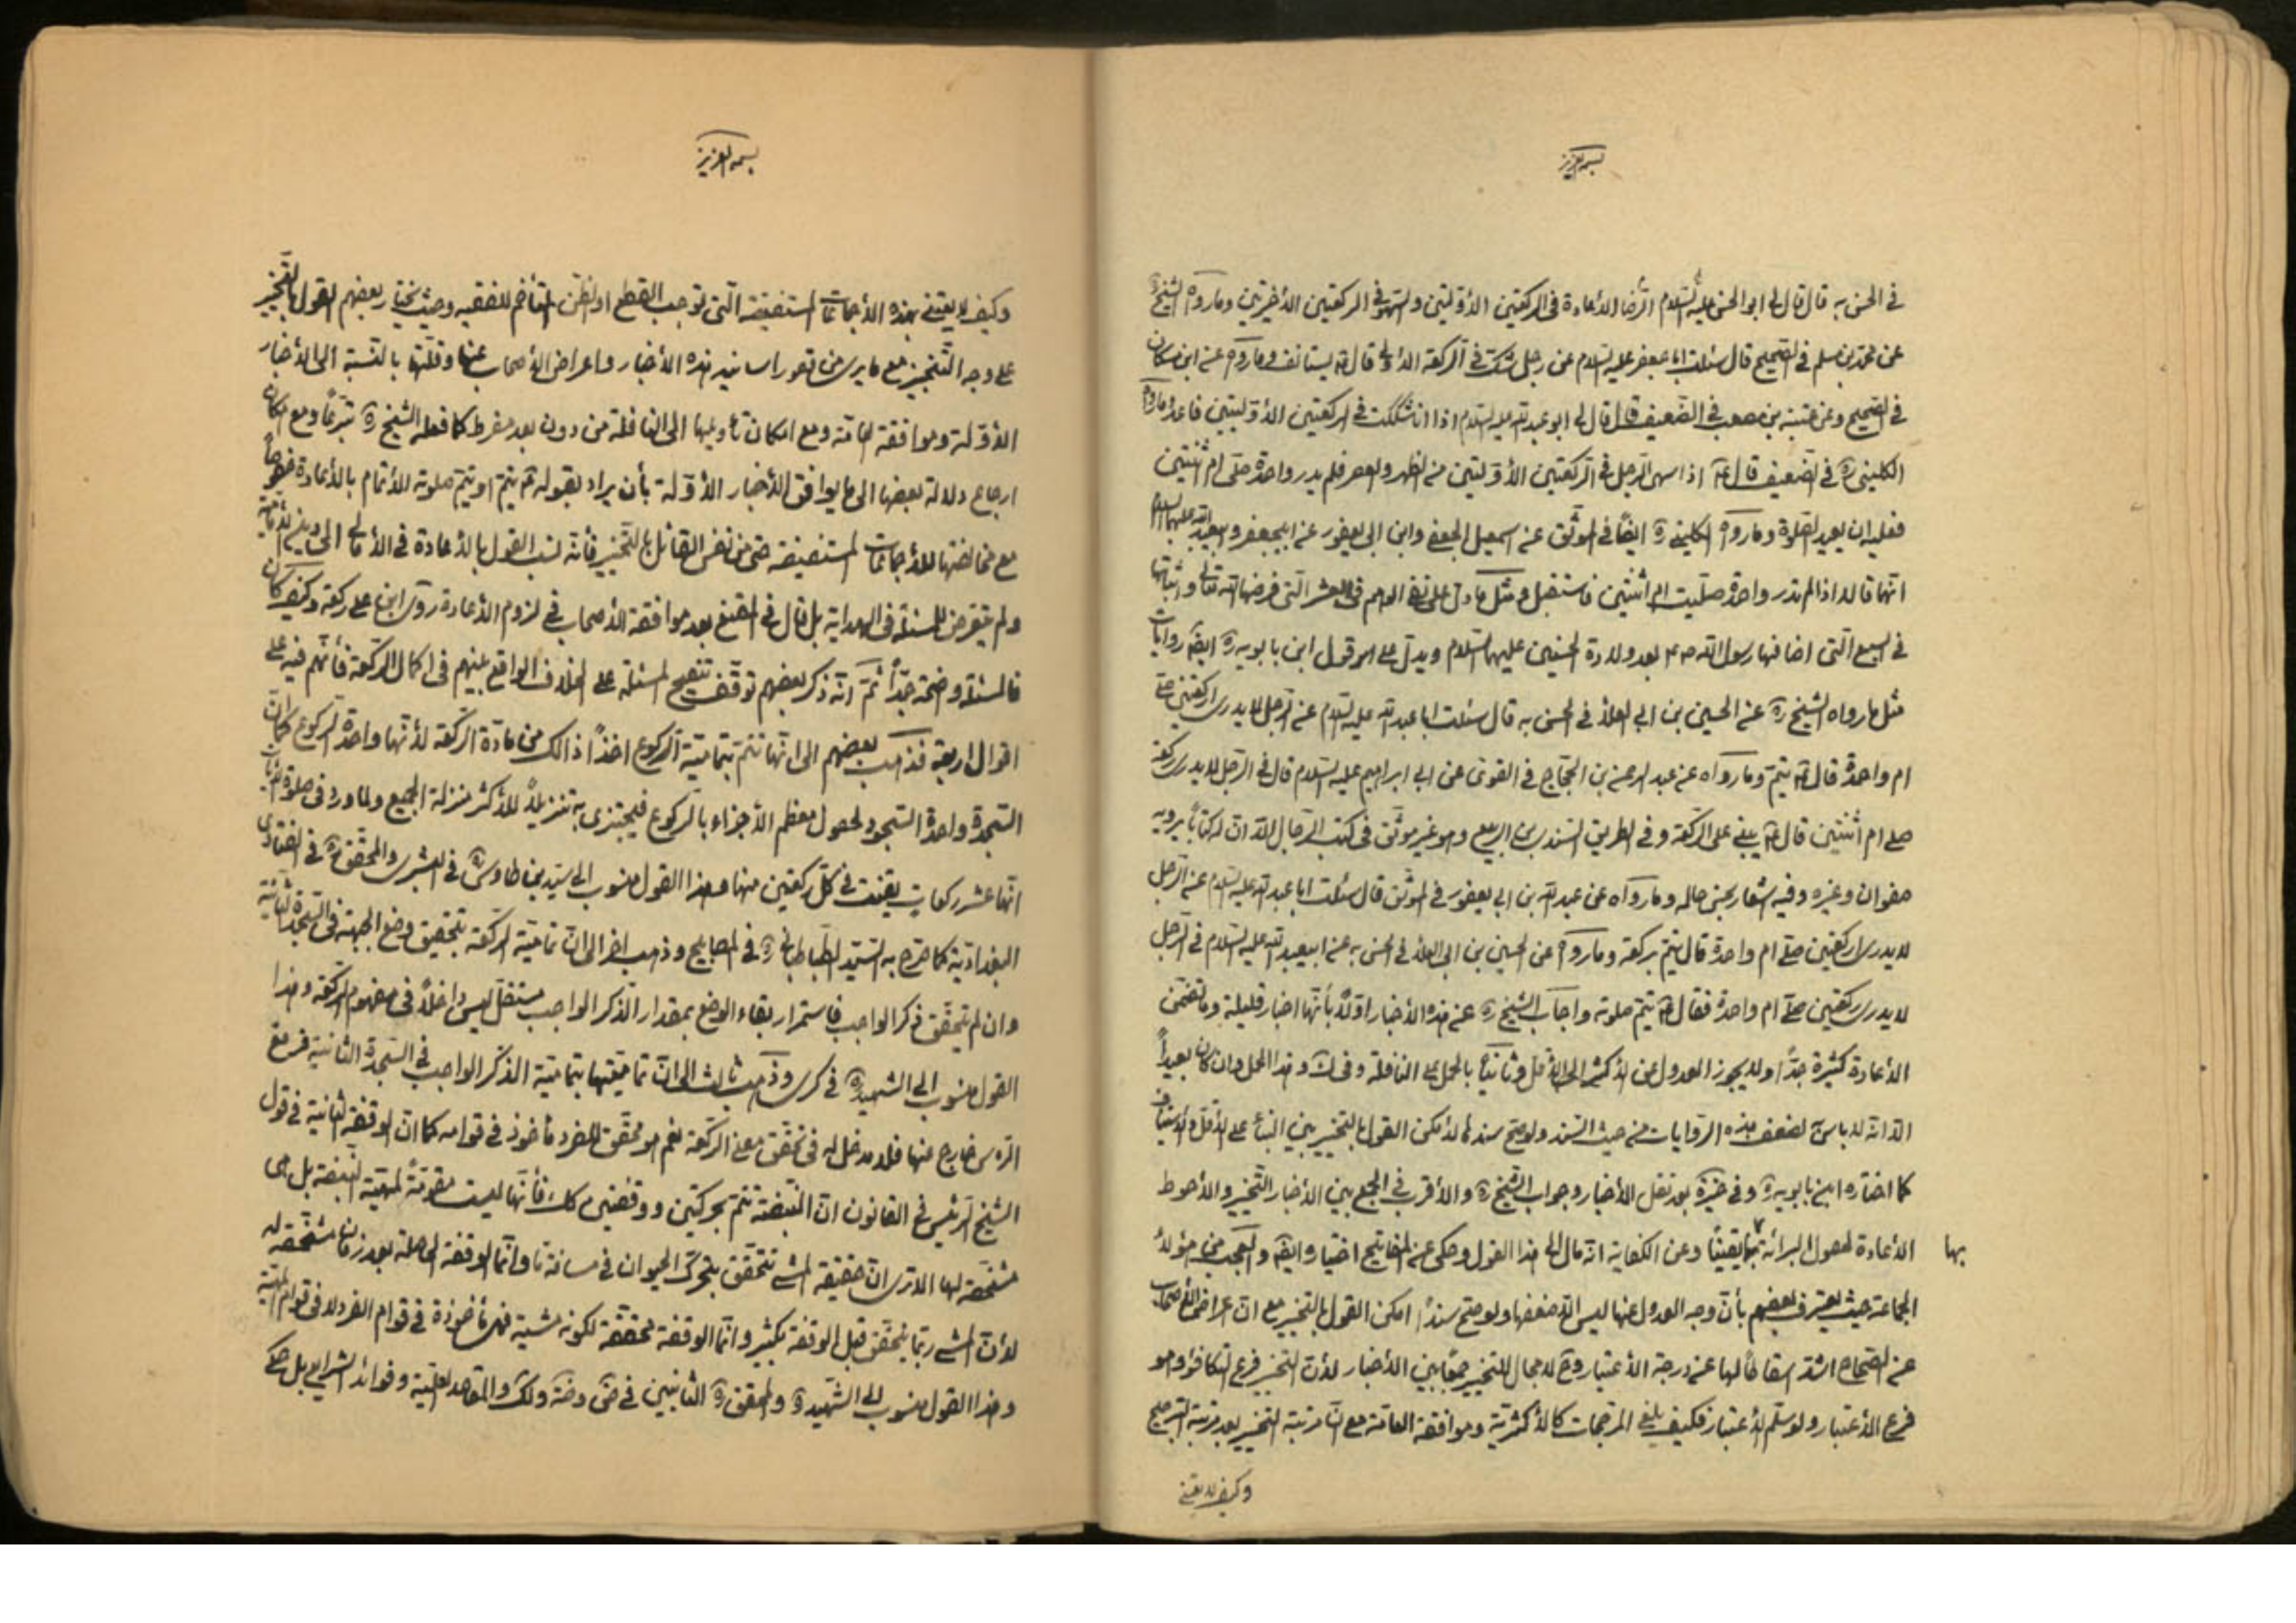 بسمه العزيز
في الحسن به قال قال لي ابو الحسن عليه السلام الرضا الاعادة في الركعتين الاوليتين والسهو في الركعتين الاخيرتين وما رواه الشيخ ره
عن محمد بن مسلم في الصحيح قال سئلت ابا جعفر عليه السلام عن رجل شك في الركعة الاولى قال ع يستانف وما رواه عن ابن مسكان
في الصحيح وعن عنبسة بن مصعب في الضعيف قال قال لي ابو عبد الله عليه السلام اذا شككت في الركعتين الاوليتين فاعد وما رواه
الكليني ره في الضعيف قال ع اذا سهى الرجل في الركعتين الأوليتين من الظهر والعصر فلم يدر واحدة صلى ام ثنتين
فعليه ان يعيد الصلوة وما رواه الكليني ره ايضا في الموثق عن اسمعيل الجعفي وابن ابي يعفور عن ابيجعفر وابيعبد الله عليهما السلام
انهما قالا اذا لم تدر واحدة صليت ام اثنتين فاستقبل ومثل ما دل على نفي الوهم في العشر التي فرضها الله تعالى واثباتها
في السبع التي اضافها رسول الله ص بعد ولادة الحسنين عليهما السلام ويدل على قول ابن بابويه ره ايضا روايات
مثل ما رواه الشيخ ره عن الحسين بن ابي العلاء في الحسن به قال سئلت ابا عبد الله عليه السلام عن الرجل لا يدري اركعتين صلى
ام واحدة قال ع يتم وما رواه عن عبد الرحمن بن الحجاج في القوي عن ابي ابراهيم عليه السلام قال في الرجل لا يدري ركعة
صلى ام اثنتين قال ع يبني على الركعة وفي الطريق السندي بن الربيع وهو غير موثق في كتب الرجال الا ان له كتابا يرويه
صفوان وغيره وفيه اشعار بحسن حاله وما رواه عن عبد الله بن ابي يعفور في الموثق قال سئلت ابا عبد الله عليه السلام عن الرجل
لا يدري اركعتين صلى ام واحدة قال يتم بركعة وما رواه عن الحسين بن ابي العلاء في الحسن به عن ابيعبد الله عليه السلام في الرجل
لا يدري ركعتين صلى ام واحدة فقال ع يتم صلوته واجاب الشيخ ره عن هذه الاخبار اولا بأنها اخبار قليلة وما تضمن
الاعادة كثيرة جدا ولا يجوز العدول من الاكثر الى الاقل وثانيا بالحمل على النافلة وفي ك وهذا الحمل وان كان بعيدا
الا انه لا بأس به لضعف هذه الروايات من حيث السند ولو صح سندها لامكن القول بالتخيير بين البناء على الاقل والاستيناف
كما اختاره ابن بابويه ره وفي خيرة بعد نقل الاخبار وجواب الشيخ ره والأقرب في الجمع بين الاخبار التخيير والاحوط
الاعادة لحصول البرائة بها يقينا وعن الكفاية انه مال الى هذا القول وحكى عن المفاتيح اختياره ايضا والعجب من هؤلاء
بها
الجماعة حيث يعترف بعضهم بأن وجه العدول عنها ليس الا ضعفها ولو صح سندا امكن القول بالتخيير مع ان اعراض الاصحاب
عن الصحاح اشد اسقاطا لها عن درجة الاعتبار وح لا مجال للتخيير جمعا بين الاخبار لأن التخيير فرع التكافؤ وهو
فرع الاعتبار ولو سلم الاعتبار فكيف يلغى المرجحات كالاكثرية وموافقة العامة مع ان مرتبة التخيير بعد مرتبة الترجيح
وكيف لا يعتني
بسمه العزيز
وكيف لا يعتني بهذه الأجماعات المستفيضة التي توجب القطع او الظن المتأخم للفقيه وحيث يختار بعضهم القول بالتخيير
على وجه التنجيز مع ما يرى من قصور اسانيد هذه الأخبار واعراض الأصحاب عنها وقلتها بالنسبة الى الأخبار
الأولة وموافقة العامة ومع امكان تأويلها الى النافلة من دون بعد مفرط كما فعله الشيخ ره تبرعا ومع امكان
ارجاع دلالة بعضها الى ما يوافق الأخبار الأولة بأن يراد بقوله ع يتم او يتم صلوته الأتمام بالأعادة خصوصا
مع مخالفتها للأجماعات المستفيضة حتى من نفس القائل بالتخيير فأنه نسب القول بالأعادة في الأمالي الى دين الأمامية
ولم يتعرض للمسئلة في الهداية بل قال في المقنع بعد موافقة الأصحاب في لزوم الأعادة روى ابن على ركعة وكيف كان
فالمسئلة واضحة جدا ثم انه ذكر بعضهم توقف تنقيح المسئلة على الخلاف الواقع بينهم في اكمال الركعة فأنهم فيه على
اقوال اربعة فذهب بعضهم الى انها تتم بتمامية الركوع اخذا ذالك من مادة الركعة لأنها واحدة الركوع كما ان
السجدة واحدة السجود لحصول معظم الأجزاء بالركوع فيجتزى به تنزيلا للأكثر منزلة الجميع ولما ورد في صلوة الآيات
انها عشر ركعات يقنت في كل ركعتين منها وهذا القول منسوب الى السيد بن طاوس ره في البشرى والمحقق ره في الفتاوى
البغدادية كما صرح به السيد الطباطبائي ره في المصابيح وذهب اخر الى ان تمامية الركعة بتحقيق وضع الجبهة في السجدة الثانية
وان لم يتحقق ذكر الواجب فاستمرار بقاء الوضع بمقدار الذكر الواجب مستقل ليس داخلا في مفهوم الركعة وهذا
القول منسوب الى الشهيد ره في كرى وذهب ثالث الى ان تماميتها بتمامية الذكر الواجب في السجدة الثانية فرفع
الرأس خارج عنها فلا مدخل له في تحقق معنى الركعة نعم هو محقق للفرد مأخوذ في قوامه كما ان الوقفة الثانية في قول
الشيخ الرئيس في القانون ان النبضة تتم بحركتين ووقفتين كك فأنها ليست مقومة لمهية النبضة بل هي
مشخصة لها الا ترى ان حقيقة المشي تتحقق بتحرك الحيوان في مسافة ما وانما الوقفة الحاصلة بعد زمان مشخصة له
لأن المشي ربما يتحقق قبل الوقفة بكثير وانما الوقفة محققة لكونه مشية فهي مأخوذة في قوام الفرد لا في قوام المهية
وهذا القول منسوب الى الشهيد ره والمحقق ره الثانيين في ض وضه ولك والمقاصد العلية وفوائد الشرايع بل حكي